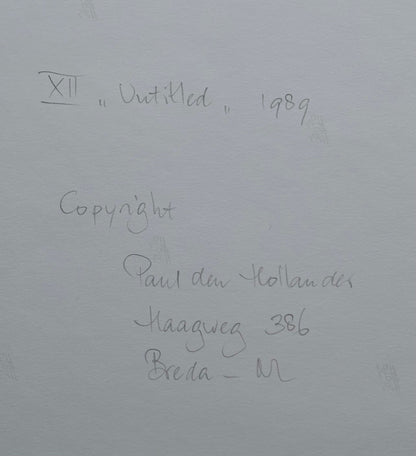 XII „Untitled„ 1989
Copyright
Paul den Hollander
Haagweg 386
Breda - NL